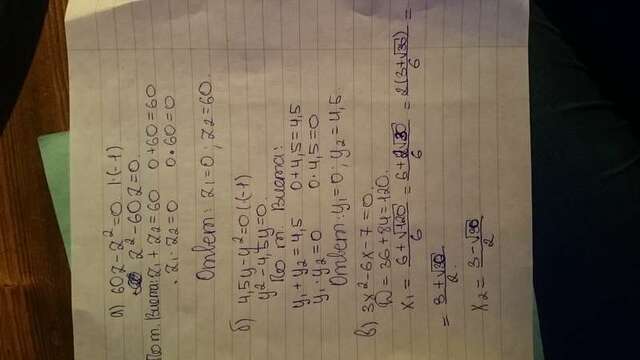 а) 60z-z²=0 |·(-1)
z²-60z=0.
По т. Виета: z₁+z₂=60 0+60=60
z₁·z₂=0 0·60=0
Ответ: z₁=0; z₂=60.
б) 4,5y-y²=0 |·(-1)
y²-4,5y=0
По т. Виета:
y₁+y₂=4,5 0+4,5=4,5
y₁·y₂=0 0·4,5=0
Ответ: y₁=0; y₂=4,5.
в) 3x²-6x-7=0.
D=36+84=120.
x₁= (6+√120)/6 = (6+2√30)/6 = (2(3+√30))/6 =
= (3+√30)/2.
x₂= (3-√30)/2